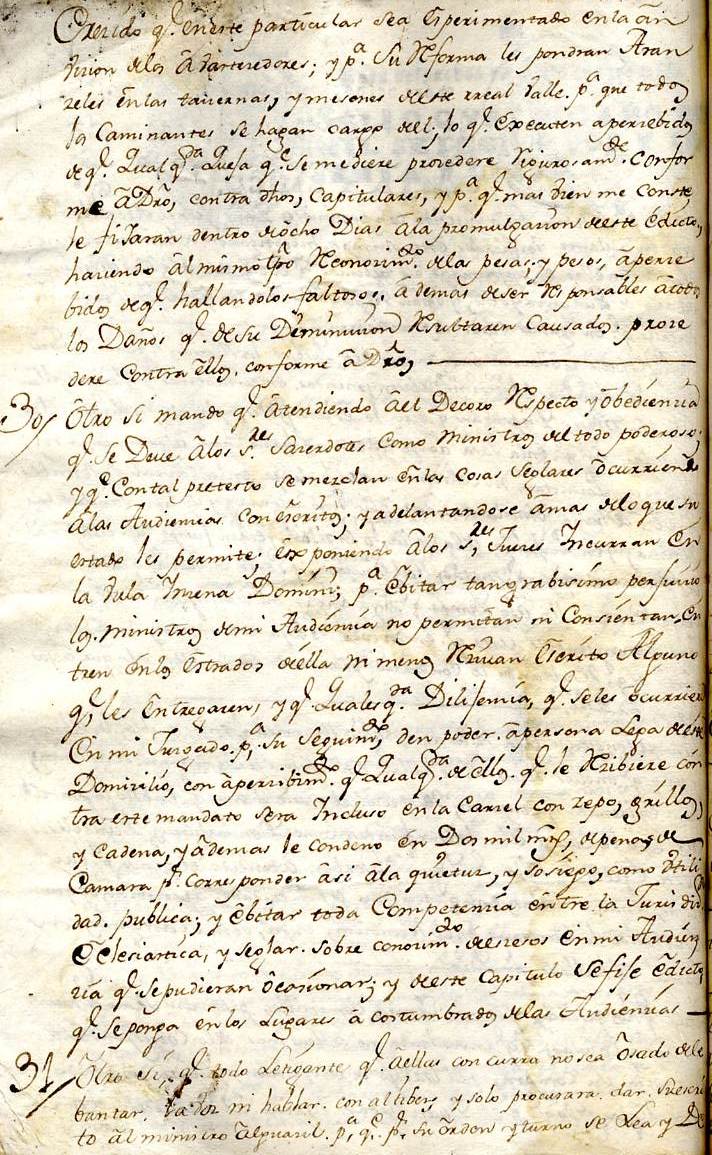 Crecido q.e en este particular sea Esperimentado en la am
vicion delos abastecedores; y p.a su Reforma les pondran Aran
zeles en las tavernas, y mesones deste rreal valle. p.a que todos
los Caminantes se hagan cargo del; lo q.e executen apercebidos
de q.e qualq.da quefa q.e se me diere procedere rigurosam.te confor
me â Dro, contra dhos, Capitulares, y p.a q.e mas bien me conste,
se fijaran dentro de ôcho Dias âla promulgazion deste edicto,
haviendo âl mismo tpo Reconocim.to delas pesas; y pesos, âperze
bidos de q.e hallandolos faltosos, ademas de ser Responsables â todos
los Daños q.e de su Deminucion Resultaren causados. proze
dere contra êllos, conforme â Dro,
30/ Otro si mando q.e âtendiendo âel Decoro Respecto y ôbediencia
q.e se Deve âlos s.res Sacerdotes como Ministros del todo poderoso;
y q.e con tal pretesto se mezclan en las cosas seglares ôcurriendo
âlas Audiencias con escritos; y adelantandose â mas delo que su
estado les permite; exponiendo âlos s.res Jueces Incurran en
la vula Incena Domini; p.a êbitar tan grabisimo perjuicio
los ministros de mi Audiencia no permitan ni consientan, en
tren en los estrados della ni menos Recivan escrito Alguno
q.e les entregaren, y q.e qualesq.da Dilijencia, q.e se les ocurriere
en mi Juzgado. p.a su seguim.to, den poder. â persona Lega deste
Domicilio, con âpercibim.to q.e qualq.da de êllos. q.e le Recibiere con
tra este mandato sera Incluso en la Carzel con zepo, grillos,
y Cadena, y âdemas le condeno en Dos mil mrs, de penas de
Camara p.r corresponder âsi âla quietuz, y sosiego, como vtili
dad. publica; y êbitar toda Competencia entre la Jurisdicn
Eclesiastica, y seglar. sobre conocim.to de escesos en mi Audien
cia q.e se pudieran ôcasionar; y deste capitulo se fije êdicto,
q.e se ponga en los Lugares â costumbrados delas Audiencias
31/ Otro si, q.e todo Letigante q.e âellas concurra no sea ôsado de le
bantar. la voz ni hablar. con altibez y solo procurara. dar. su escri
to âl ministro âlguazil. p.a q.e p.r su ôrden y turno se Lea y De